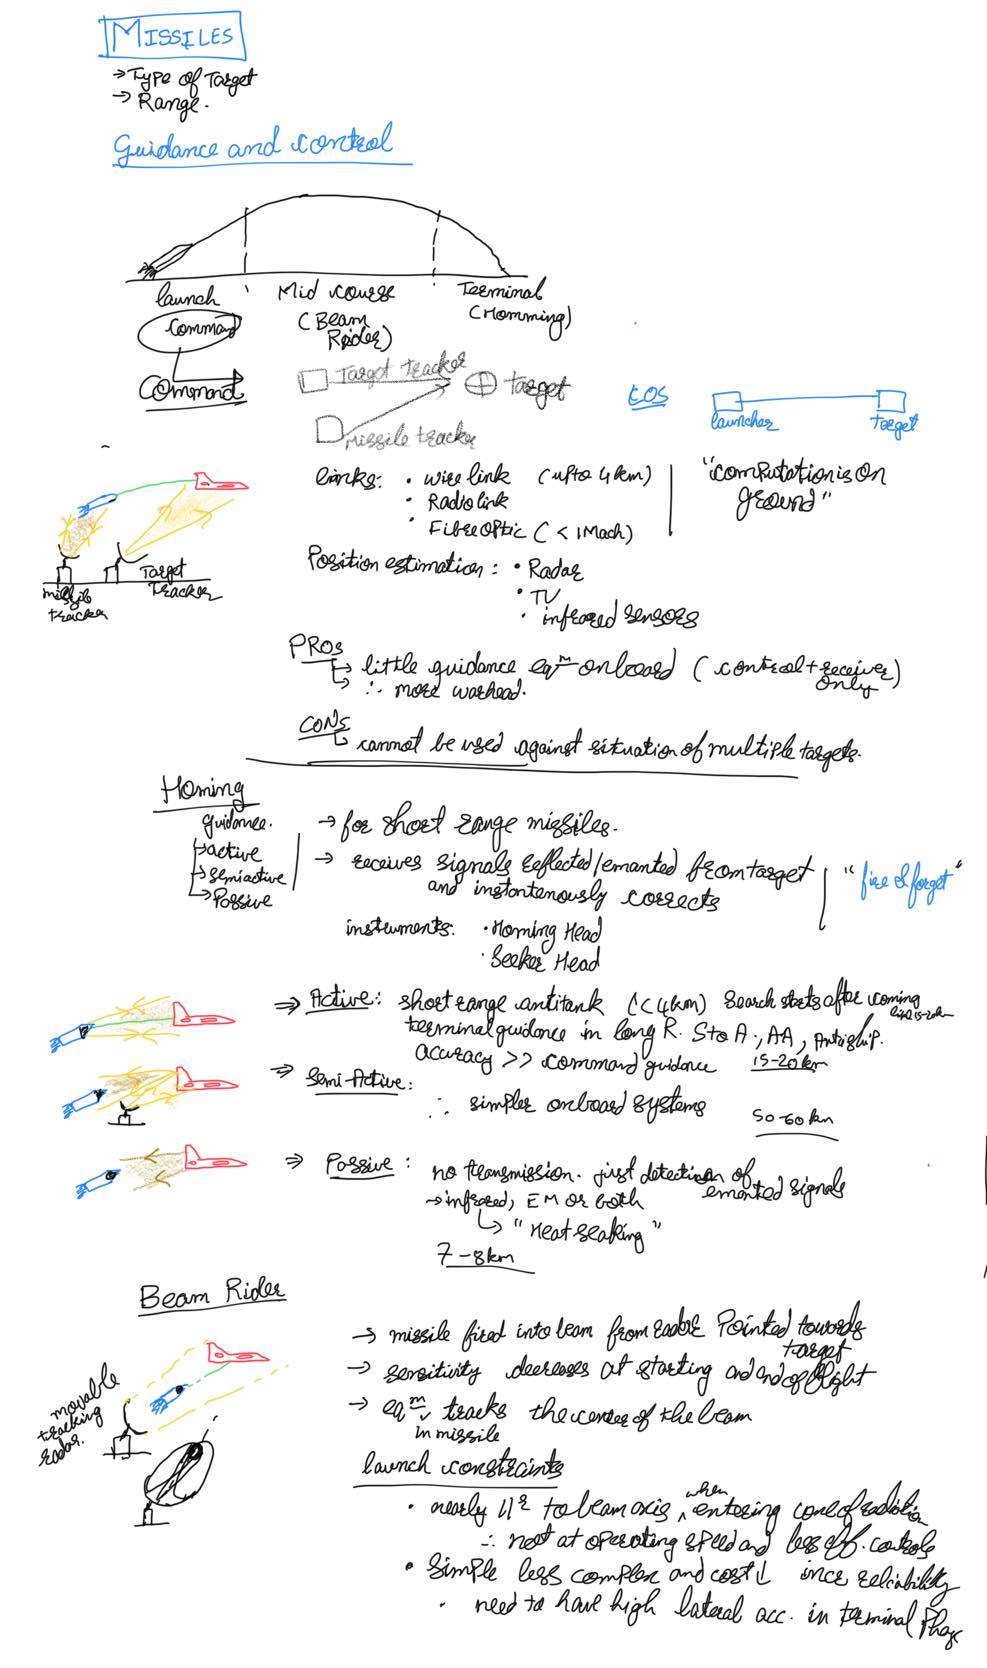 MISSILES
→ Type of Target
→ Range.
Guidance and control
launch
Mid course
Terminal
(Homming)
Command
(Beam
Rider)
Command
Target tracker
Target
Missile tracker
LOS
launcher
target
Links: • wire link (upto 4km)
• Radio link
• Fibre optic (< 1 Mach)
"computation is on
ground"
missile
tracker
Target
Tracker
Position estimation: • Radar
• TV
• infrared sensors
PROs
↳ little guidance eqᵐ onboard (control + receiver
only)
↳ ∴ more warhead.
CONs
↳ cannot be used against situation of multiple targets.
Homing
guidance.
→ active
→ semiactive
→ Passive
→ for short range missiles.
→ receives signals reflected/emanted from target
and instantenously corrects
"fire & forget"
instruments: • Homing Head
• Seeker Head
⇒ Active: short range antitank (<4km) Search starts after coming
15-20km
terminal guidance in long R. StoA., AA, Antiship.
accuracy >> command guidance 15-20km
⇒ Semi-Active:
∴ simpler onboard systems
50-60km
⇒ Passive: no transmission. just detection of
emanted signals
→ infrared, EM or both
↳ "Heat seaking"
7-8km
Beam Rider
→ missile fired into beam from radar Pointed towards
target
→ sensitivity decreases at starting and end of flight
→ eqᵐ tracks the center of the beam
in missile
movable
tracking
radar.
launch constraints
• nearly 11ᵉ to beam axis, when entering cone of radiation
∴ not at operating speed and less eff. controls
• simple less complex and cost↓ incr reliability
• need to have high lateral acc. in terminal Phase